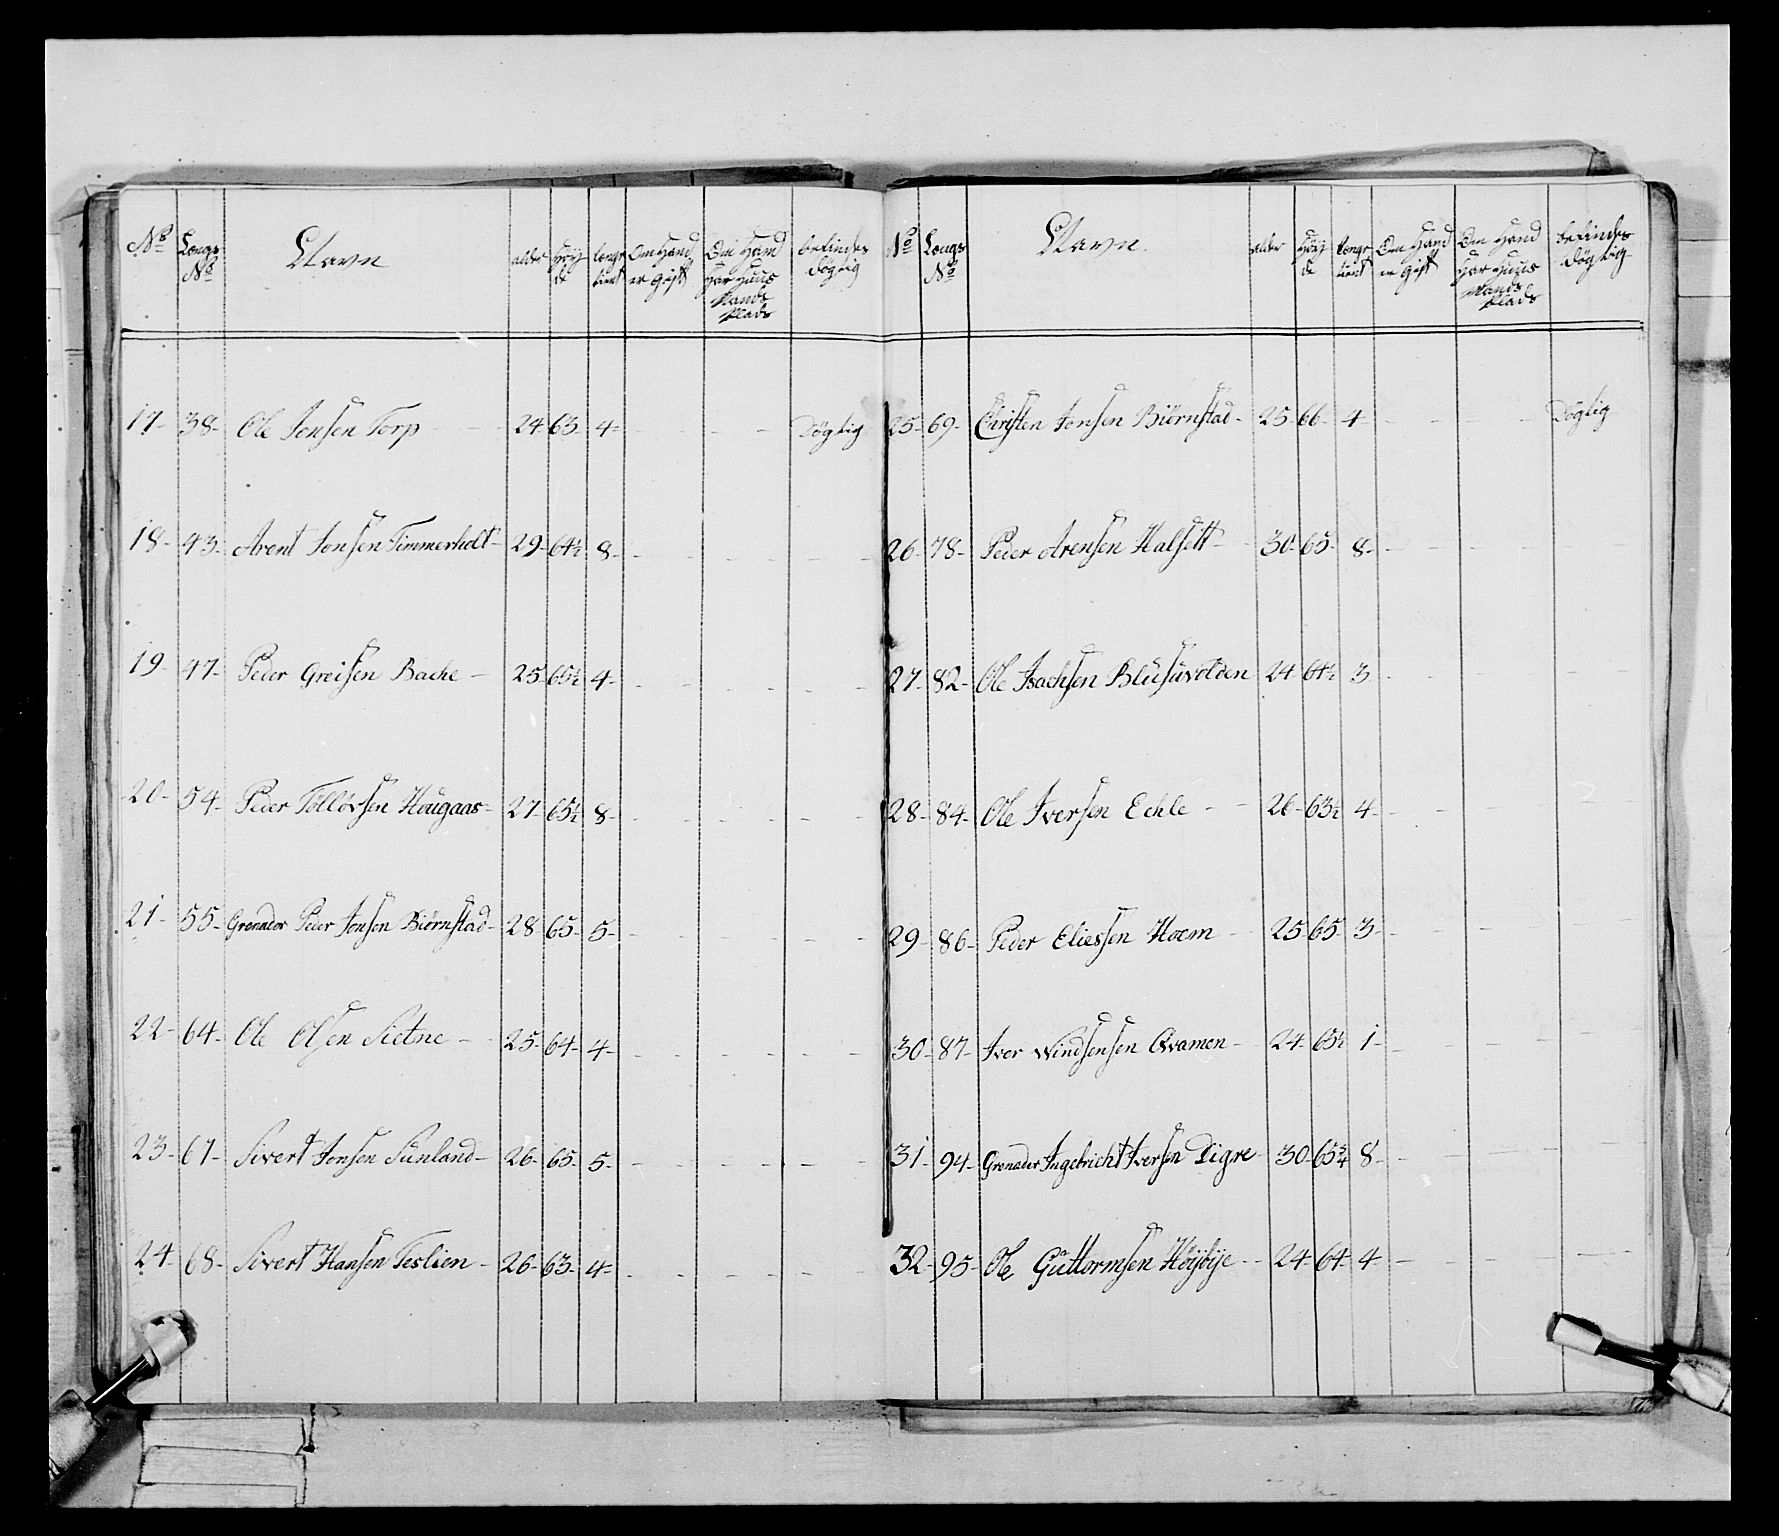 No Laugs No Navn alder Høy de Längr tient Om Hand er gift Om Hand har Huus Mands Plads befindes døgtig
17- 38- Ole Jonsen Torp 24- 63 4- - - Døgtig
18- 43- Arent Jonsen Timmerholt- 29- 64½ 8- - - - - - -
19- 47- Peder Greisen Bache - 25- 65½ 4- - - - - - -
20- 54- Peder Tølløvsen Hougaas- 27- 65½ 8- - - - - - -
21- 55- Grenader Peder Jonsen Biørnstad- 28 65- 5- - - - -
22- 64- Ole Olsen Sletne - 25- 64- 4- - - - - - -
23- 67- Sivert Jonsen Sünland- 26- 65- 5- - - - - - -
24- 68- Sivert Hansen Teslien - 26- 63- 4- - - - - - -
No Laugs No Navn. alder Høy de Längr tient Om Hand er gift Om Hand har Huus Mands Plads befindes døgtig
25- 69- Christen Jonsen Biörnstad- 25- 66- 4- - - - - Døgtig
26- 78- Peder Arensen Halsett - 30- 65- 8- - - - - -
27- 82- Ole Isachsen Blusuvolden 24 64½ 3 - - - - -
28- 84- Ole Iversen Echle - - 26- 63½ 4- - - - - -
29- 86- Peder Eliessen Hoem - 25- 65- 3- - - - - -
30- 87- Iver Windsensen Qvamen- 24- 65½ 1- - - - - -
31- 94- Grenader Ingebricht Iversen Digre- 30- 65¾ 8- - - - - -
32- 95- Ole Güttormsen Høybye - - 24- 64- 4- - - - - -